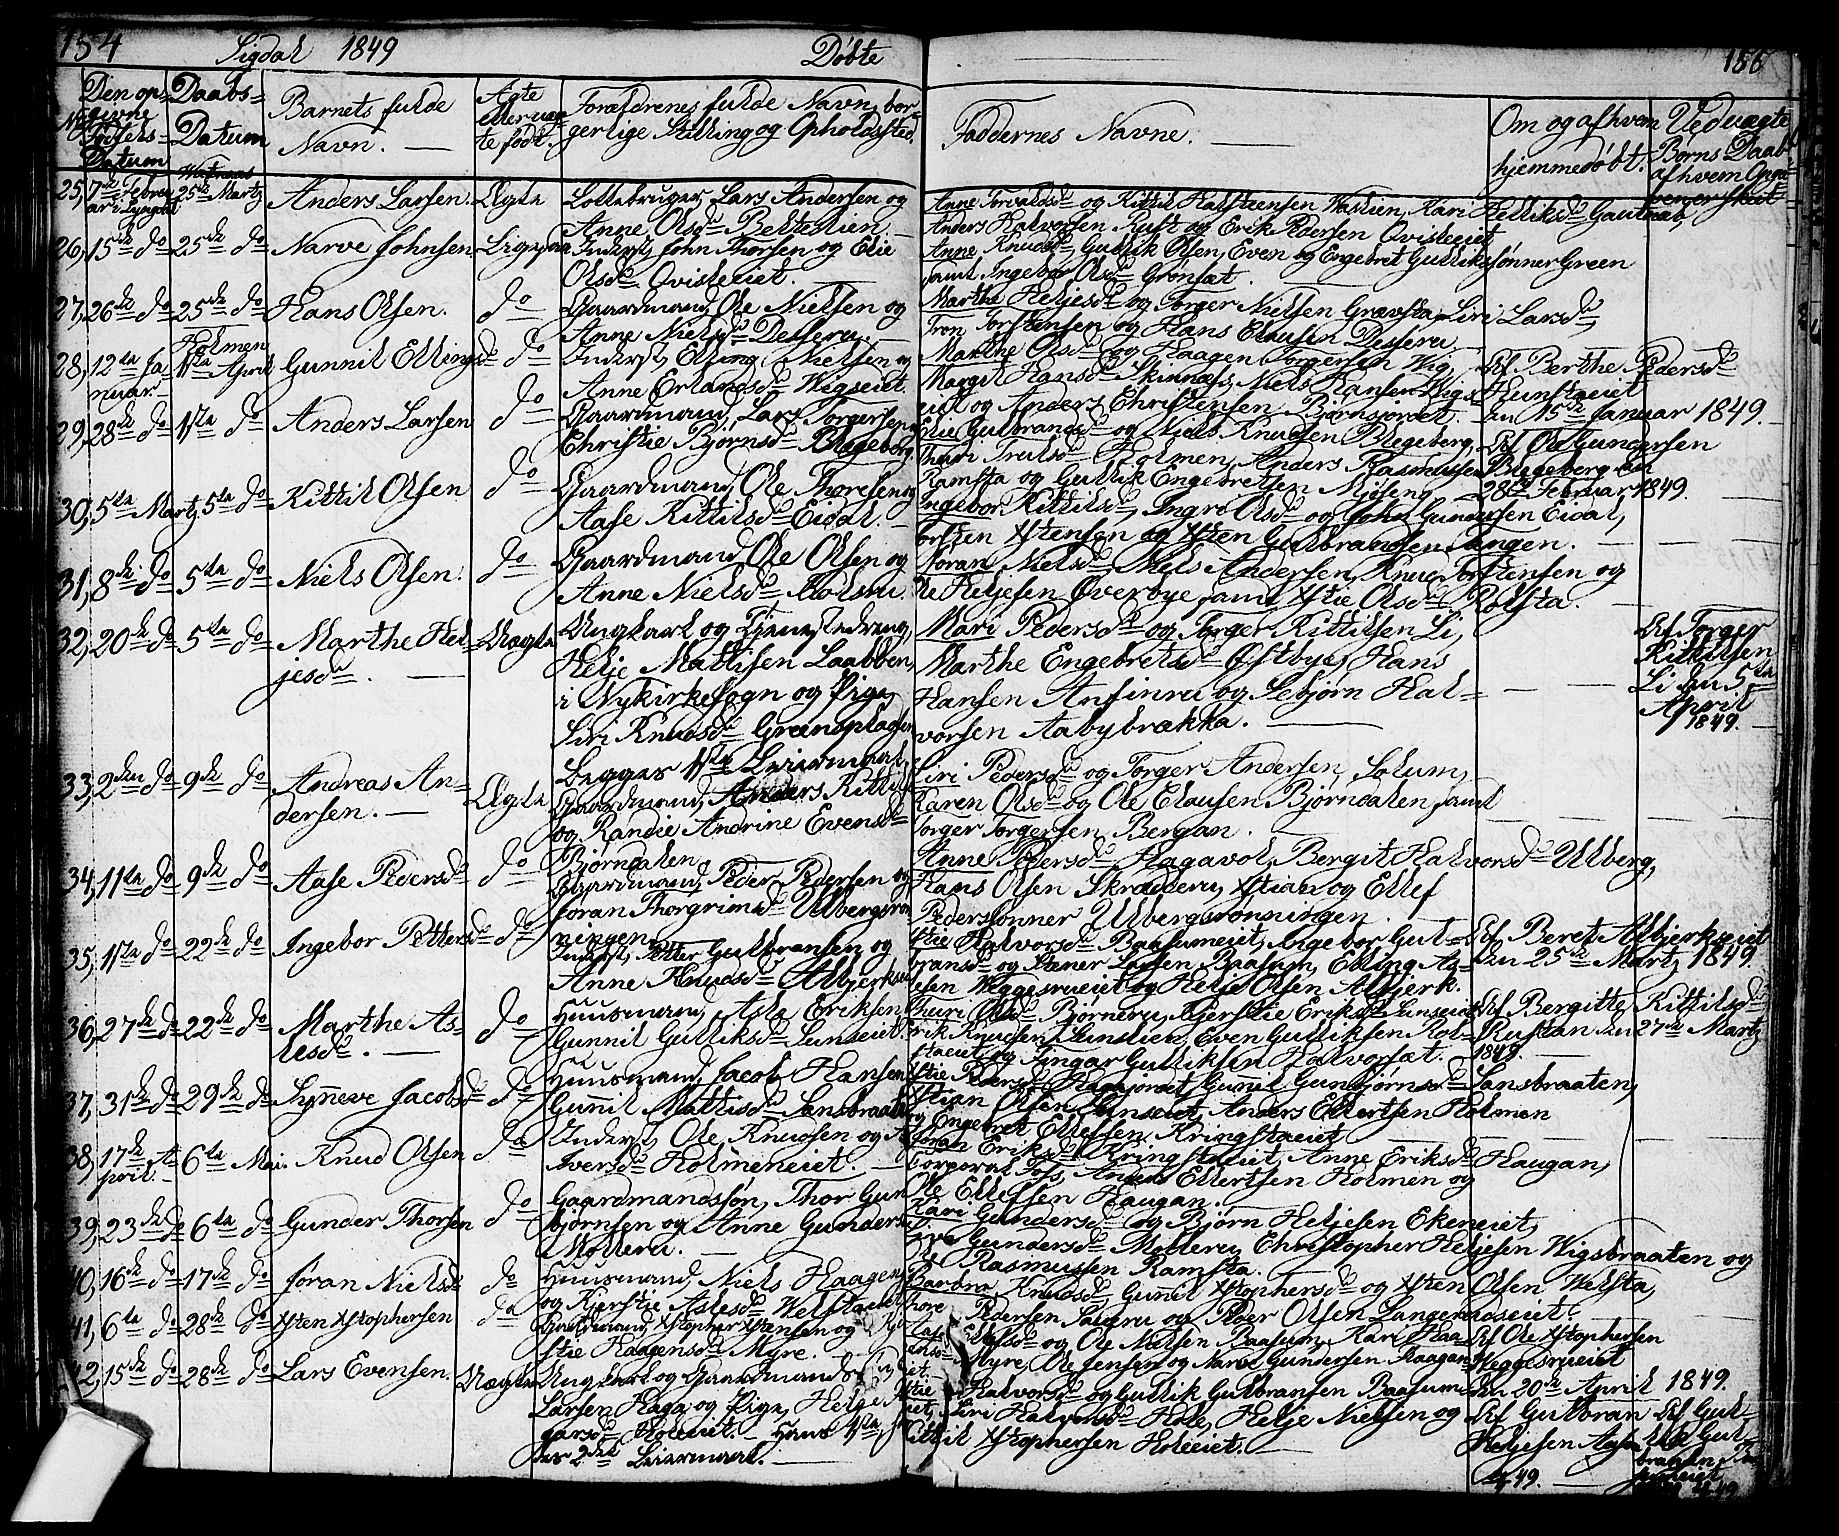 154 Sigdal 1849 Døbte 155
No Den opgivne Fødsels Datum
Daabs-Datum
Barnets fulde Navn.
Ægte eller uægte født.
Forældrenes fulde Navn, borgerlige Stilling og Opholdssted.
Faddernes Navne.
Om og af hvem hjemmedøbt.
Ved uægte Børns Daab af hvem Opgaven er skeet
25, 7de Februari 25de Martz Anders Larsen. Ægte Lottebruger, Lars Andersen og
Anne Olsd.
Anne Torvaldsd. og Kittil Halsteensen Kari
Anders Halvorsen Ruft og Erik Pedersen Qvisleeiet
26, 15de do 25de do Narve Johnsen Inderst, John Thorsen og Elie
Olsd. Qvisleeiet.
Anne Knudsd., Gullik Olsen, Even og Engebret Gulliksønner Green
samt Ingebor Olsd. Grønsæt.
27, 26de do 25de do Hans Olsen. do Gaardmand, Ole Nielsen og
Anne Nielsd.
Marthe Heljesd. og Torger Nielsen Grævsta, Siri Larsd.,
Tron Torstensen og Hans Clausen
Holmen
28, 12te Januar 1ste April Gunnil Ellingsd. do Inderst, Elling Nielsen og
Anne Erlandsd. Wigseiet.
Marthe Olsd. og Haagen Torgersen Wig,
Margit Hansd. Skinnæs, Niels Hansen Wigs-
eiet og Anders Christensen Bjørnsjordet.
Af Berthe Pedersd.
Hunstaeiet
den 15de Januar 1849.
29, 28de do 1ste do Anders Larsen do Gaardmand, Lars Torgersen og
Christie Bjørnsd. Blegeberg.
Elie Gulbrandsd. og Niels Knudsen Blegeberg,
Thuri Trulsd. Holmen, Anders Rasmussen
Ramsta og Gullik Engebretsen
Af Ole Gundersen
Blegeberg den
28de Februar 1849.
30, 5te Martz 5te do Kittil Olsen do Gaardmand, Ole Thoresen og
Aase Kittilsd. Eidal.
Ingebor Kittilsd., Ingro Olsd. og John Gundersen Eidal,
Torsten Xstensen og Xsten Gulbrandsen Langen.
31, 8de do 5te do Niels Olsen. do Gaardmand Ole Olsen og
Anne Nielsd.
Jøran Nielsd., Niels Andersen, Knud Torstensen og
Ole Heljesen Øverbye samt Xstie Olsd. Rolsta.
32, 20de do 5te do Marthe Hel-
jesd.
Uægte Ungkarl og Tjenestedreng,
Helje Mattisen Laabben,
i Nykirke Sogn og Pige,
Siri Knudsd. Greensplassen
Begges 1ste Leiermaal
Mari Pedersd. og Torger Kittilsen Li,
Marthe Engebretsd. Østbye, Hans
Hansen Anfinru og Sebjørn Hal-
vorsen Aabybrækka.
Af Torger
Kittilsen
Li den 5te
April
1849.
33, 2den do 9de do Andreas An-
dersen.
Ægte Gaardmand, Anders Kittils
og Randie Andrine Evensd.
Bjørndalen
Siri Pedersd. og Torger Andersen, Solum,
Karen Olsd. og Ole Clausen Bjørndalen samt
Torger Torgersen Bergan.
34, 11te do 9de do Aase Pedersd. do Gaardmand, Peder Pedersen og
Jøran Thorgrimsd. Ulbergsrøn-
ningen
Anne Pedersd. Hagavol, Bergit Halvorsd. Ulberg,
Hans Olsen Skrædderu, Xstian og Ellef
Pederssønner Ulbergsrønningen.
35, 1ste do 22de do Ingebor Pettersd. do Inderst, Petter Gulbransen og
Anne Knudsd. Albjerkeiet
Xstie Halvorsd. Baasumeiet, Ingebor Gul-
bransd. og Stener Larsen Baasum, Elling As-
lesen Weggesrueiet og Helje Olsen Albjerk.
Af Beret Albjerkeiet
den 25de Martz 1849.
36, 27de do 22de do Marthe As-
lesd.
do Huusmand, Asle Eriksen
Gunnil Gulliksd. Lunseiet.
Thuri Olsd. Bjørneru, Kjerstie Eriksd. Lunseiet
Erik Knudsen Lunseien, Even Gulliksen Rol-
staeiet og Ingvar Gulliksen Halvorsæt.
Af Bergitte Kittilsd.
Rustan den 27de Martz
1849.
37, 31te do 29de do Synneve Jacobsd. do Huusmand, Jacob Hansen
Gunnil Mattisd. Sansbraaten
Xstie Pedersd. Hagajordet, Gunnil Gunbjørnsd. Sansbraaten,
Xstian Olsen Lunseiet, Anders Ellertsen Holmen
og Engebret Ellefsen Kringstaeiet
38, 17de April 6te Mai. Knud Olsen do Inderst, Ole Knudsen og
Iversd. Holmeneiet.
Jøran Eriksd. Kringstaeiet, Anne Eriksd. Haugan,
Corporal Foss, Anders Ellertsen Holmen og
Ole Ellefsen Haugan.
39, 23de do 6te do Gunder Thorsen do Gaardmandssøn, Thor Gun-
bjørnsen og Anne Gundersd.
Molleru.
Kari Gundersd. og Bjørn Heljesen Ekeneiet,
Siva Gundersd. Molleru, Christopher Heljesen Wigsbraaten og
Ole Rasmussen Ramsta.
40, 16de do 17de do Jøran Nielsd. do Huusmand, Niels Haagens
og Kjerstie Aslesd. Welstaeiet
Barbra Knudsd., Gunil Xstophersd. og Xsten Olsen Welsta,
Thore Pedersen og Peder Olsen Langerudseiet.
41, 6te do 28de do Xsten Xstophersen do Gaardmand, Xstopher Xstensen og
stie Haagensd. Myre.
Ellefsd. og Ole Nielsen Baasum, Kari Haa-
Myre, Ole Jensen og Narve Gundersen Haagan
Af Ole Xstophersen
Weggesrueiet
den 20de April 1849.
42, 15de do 28de do Lars Evensen. Uægte Ungkarl og Gaardmands
Larsen Haga og Pige, Helje
garsd. Holeeiet. Hans 1ste
des 2det Leiermaal.
Xstie Halvorsd. og Gullik Gulbransen Baasum
Siri Halvorsd. Hole, Helje Nielsen og
Kittil Xstophersen Holeeiet.
Af Gulbran
Heljesen
49.
Af Gul-